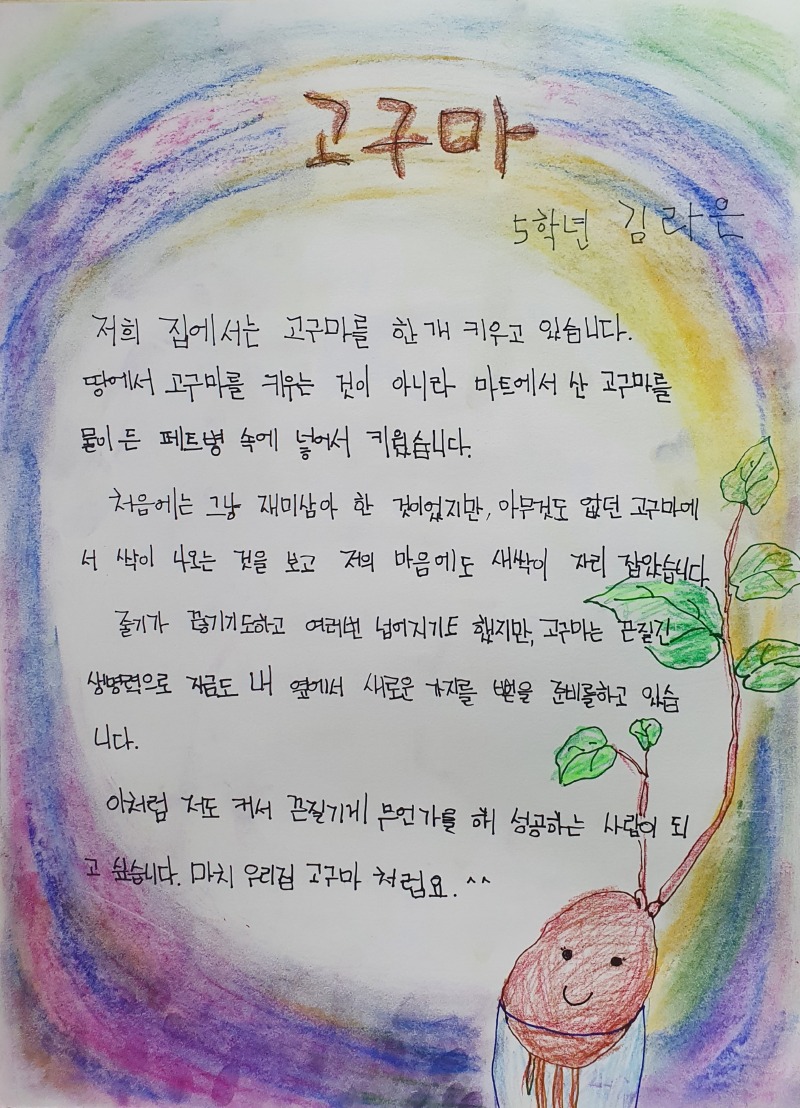 고구마
5학년 김라은
저희 집에서는 고구마를 한 개 키우고 있습니다.
땅에서 고구마를 키우는 것이 아니라 마트에서 산 고구마를
물이 든 페트병 속에 넣어서 키웠습니다.
처음에는 그냥 재미삼아 한 것이었지만, 아무것도 없던 고구마에
서 싹이 나오는 것을 보고 저의 마음에도 새싹이 자리 잡았습니다
줄기가 끊기기도하고 여러번 넘어지기도 했지만, 고구마는 끈질긴
생명력으로 지금도 내 옆에서 새로운 가지를 뻗을 준비를하고 있습
니다.
이처럼 저도 커서 끈질기게 무언가를 해 성공하는 사람이 되
고 싶습니다. 마치 우리집 고구마 처럼요. ^^